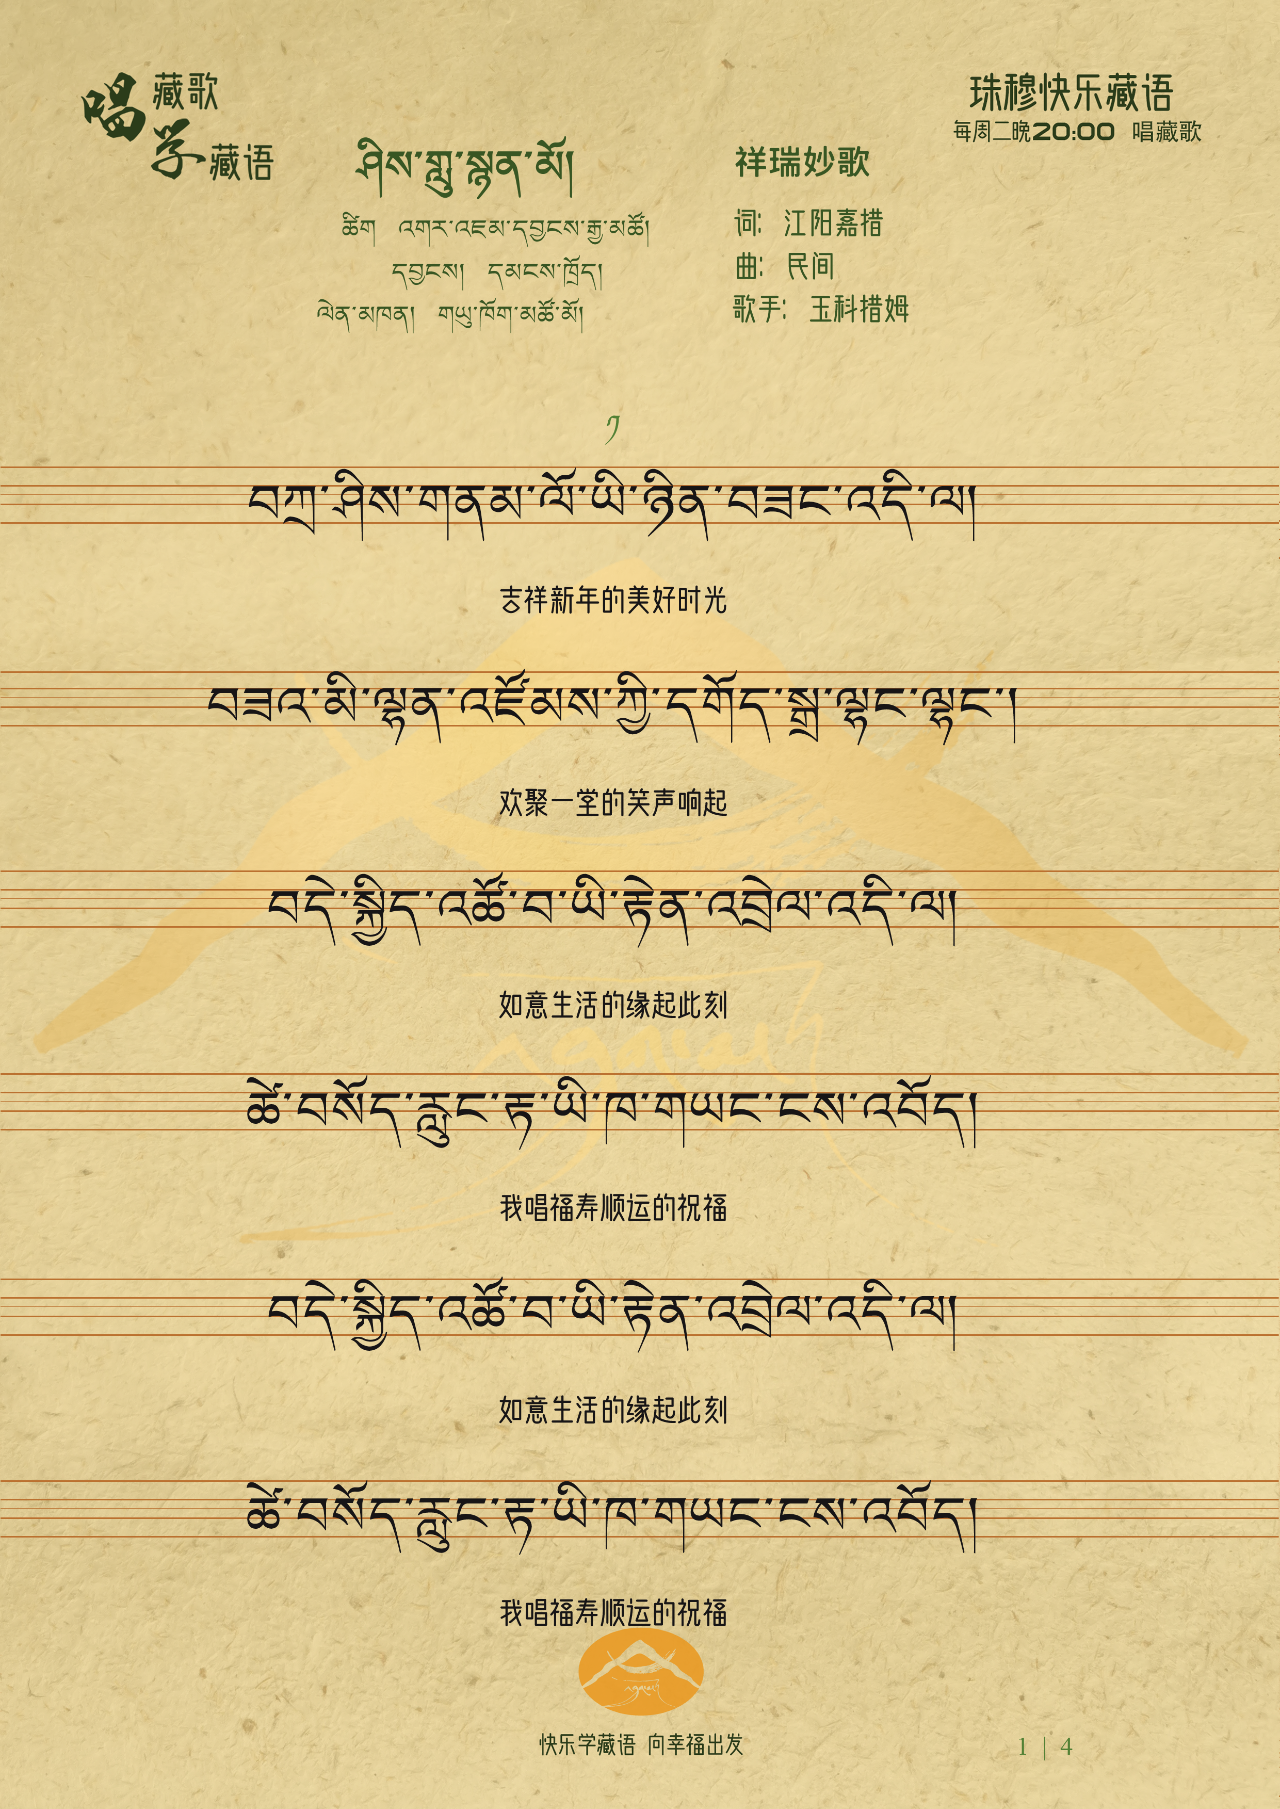 唱藏歌
学藏语
珠穆快乐藏语
每周二晚20:00 唱藏歌
ཤིས་གླུ་སྙན་མོ།
祥瑞妙歌
ཚིག འགར་འཇམ་དབྱངས་རྒྱ་མཚོ།
词: 江阳嘉措
དབྱངས། དམངས་ཁྲོད།
曲: 民间
ལེན་མཁན། གཡུ་ཁོག་མཚོ་མོ།
歌手: 玉科措姆
༡
བཀྲ་ཤིས་གནམ་ལོ་ཡི་ཉིན་བཟང་འདི་ལ།
吉祥新年的美好时光
བཟའ་མི་ལྷན་འཛོམས་ཀྱི་དགོད་སྒྲ་ལྷང་ལྷང་།
欢聚一堂的笑声响起
བདེ་སྐྱིད་འཚོ་བ་ཡི་རྟེན་འབྲེལ་འདི་ལ།
如意生活的缘起此刻
ཚེ་བསོད་རླུང་རྟ་ཡི་ཁ་གཡང་ངས་འབོད།
我唱福寿顺运的祝福
བདེ་སྐྱིད་འཚོ་བ་ཡི་རྟེན་འབྲེལ་འདི་ལ།
如意生活的缘起此刻
ཚེ་བསོད་རླུང་རྟ་ཡི་ཁ་གཡང་ངས་འབོད།
我唱福寿顺运的祝福
快乐学藏语 向幸福出发
1 | 4